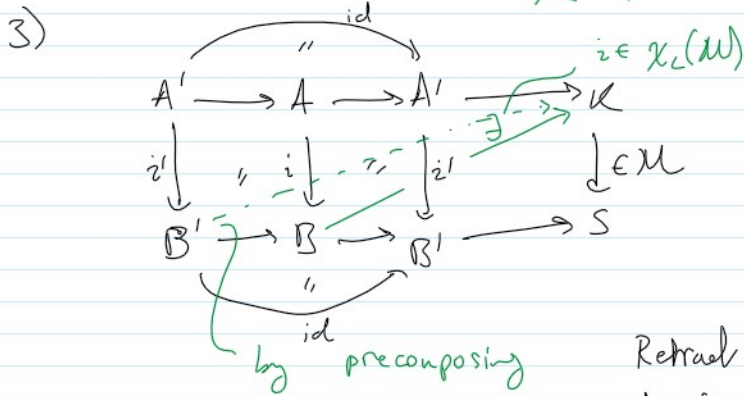 3)
id
"
i ∈ χ_L(M)
A' → A → A' → K
∃
i' " i " i' ∈ M
B' → B → B' → S
"
id
by precomposing
Retract